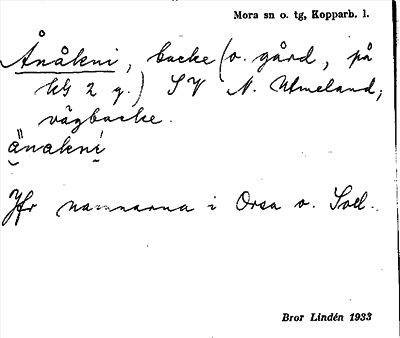 Mora sn o. tg, Kopparb. l.
Ånåkni, backe (o. gård, på
kG 2 g.) SV N. Utmeland;
vägbacke.
änakni
Jfr namnarna i Orsa o. Soll.
Bror Lindén 1933